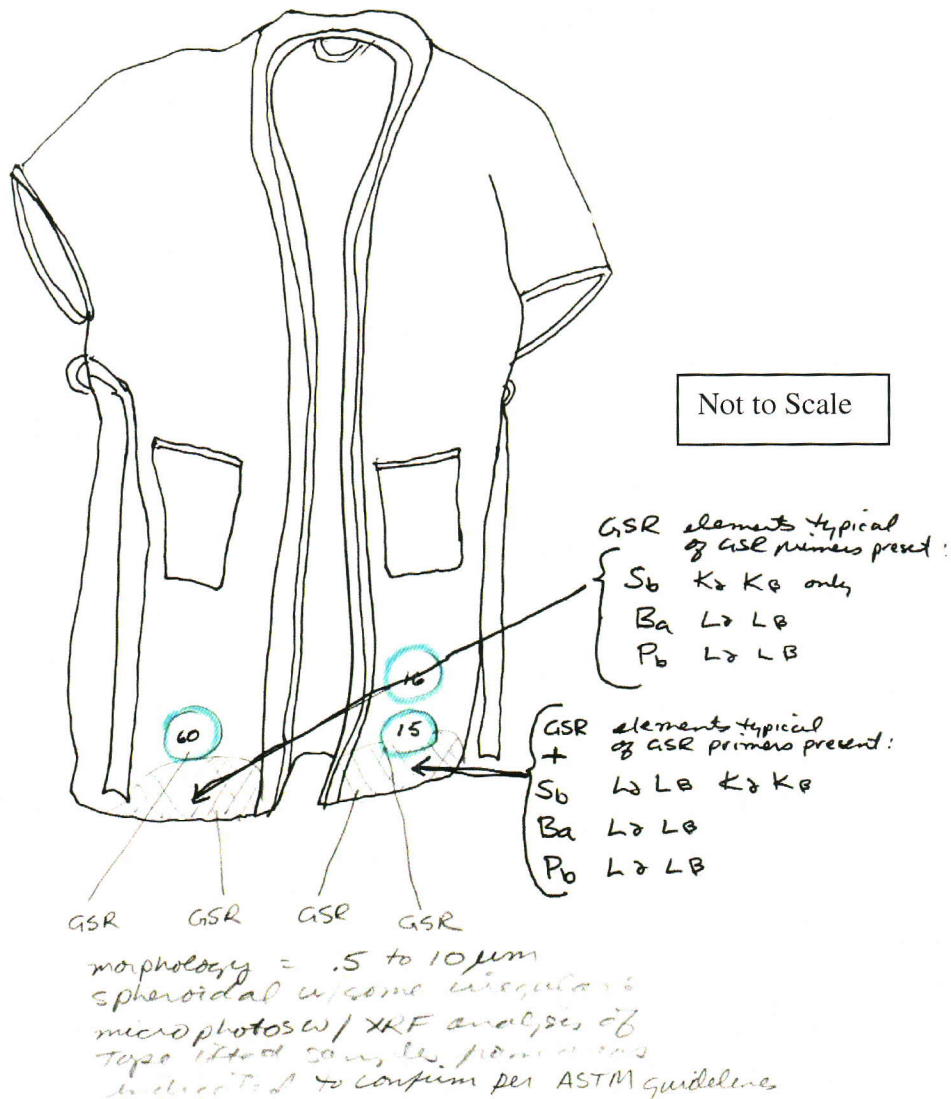 Not to Scale
GSR elements typical
of GSR primers present :
Sb Kα Kβ only
Ba Lα Lβ
Pb Lα Lβ
16
60
15
GSR elements typical
+ of GSR primers present :
Sb Lα Lβ Kα Kβ
Ba Lα Lβ
Pb Lα Lβ
GSR GSR GSR GSR
morphology = .5 to 10 µm
spheroidal w/some irregular
microphotos w/ XRF analysis of
Tape lifted samples
to confirm per ASTM guidelines